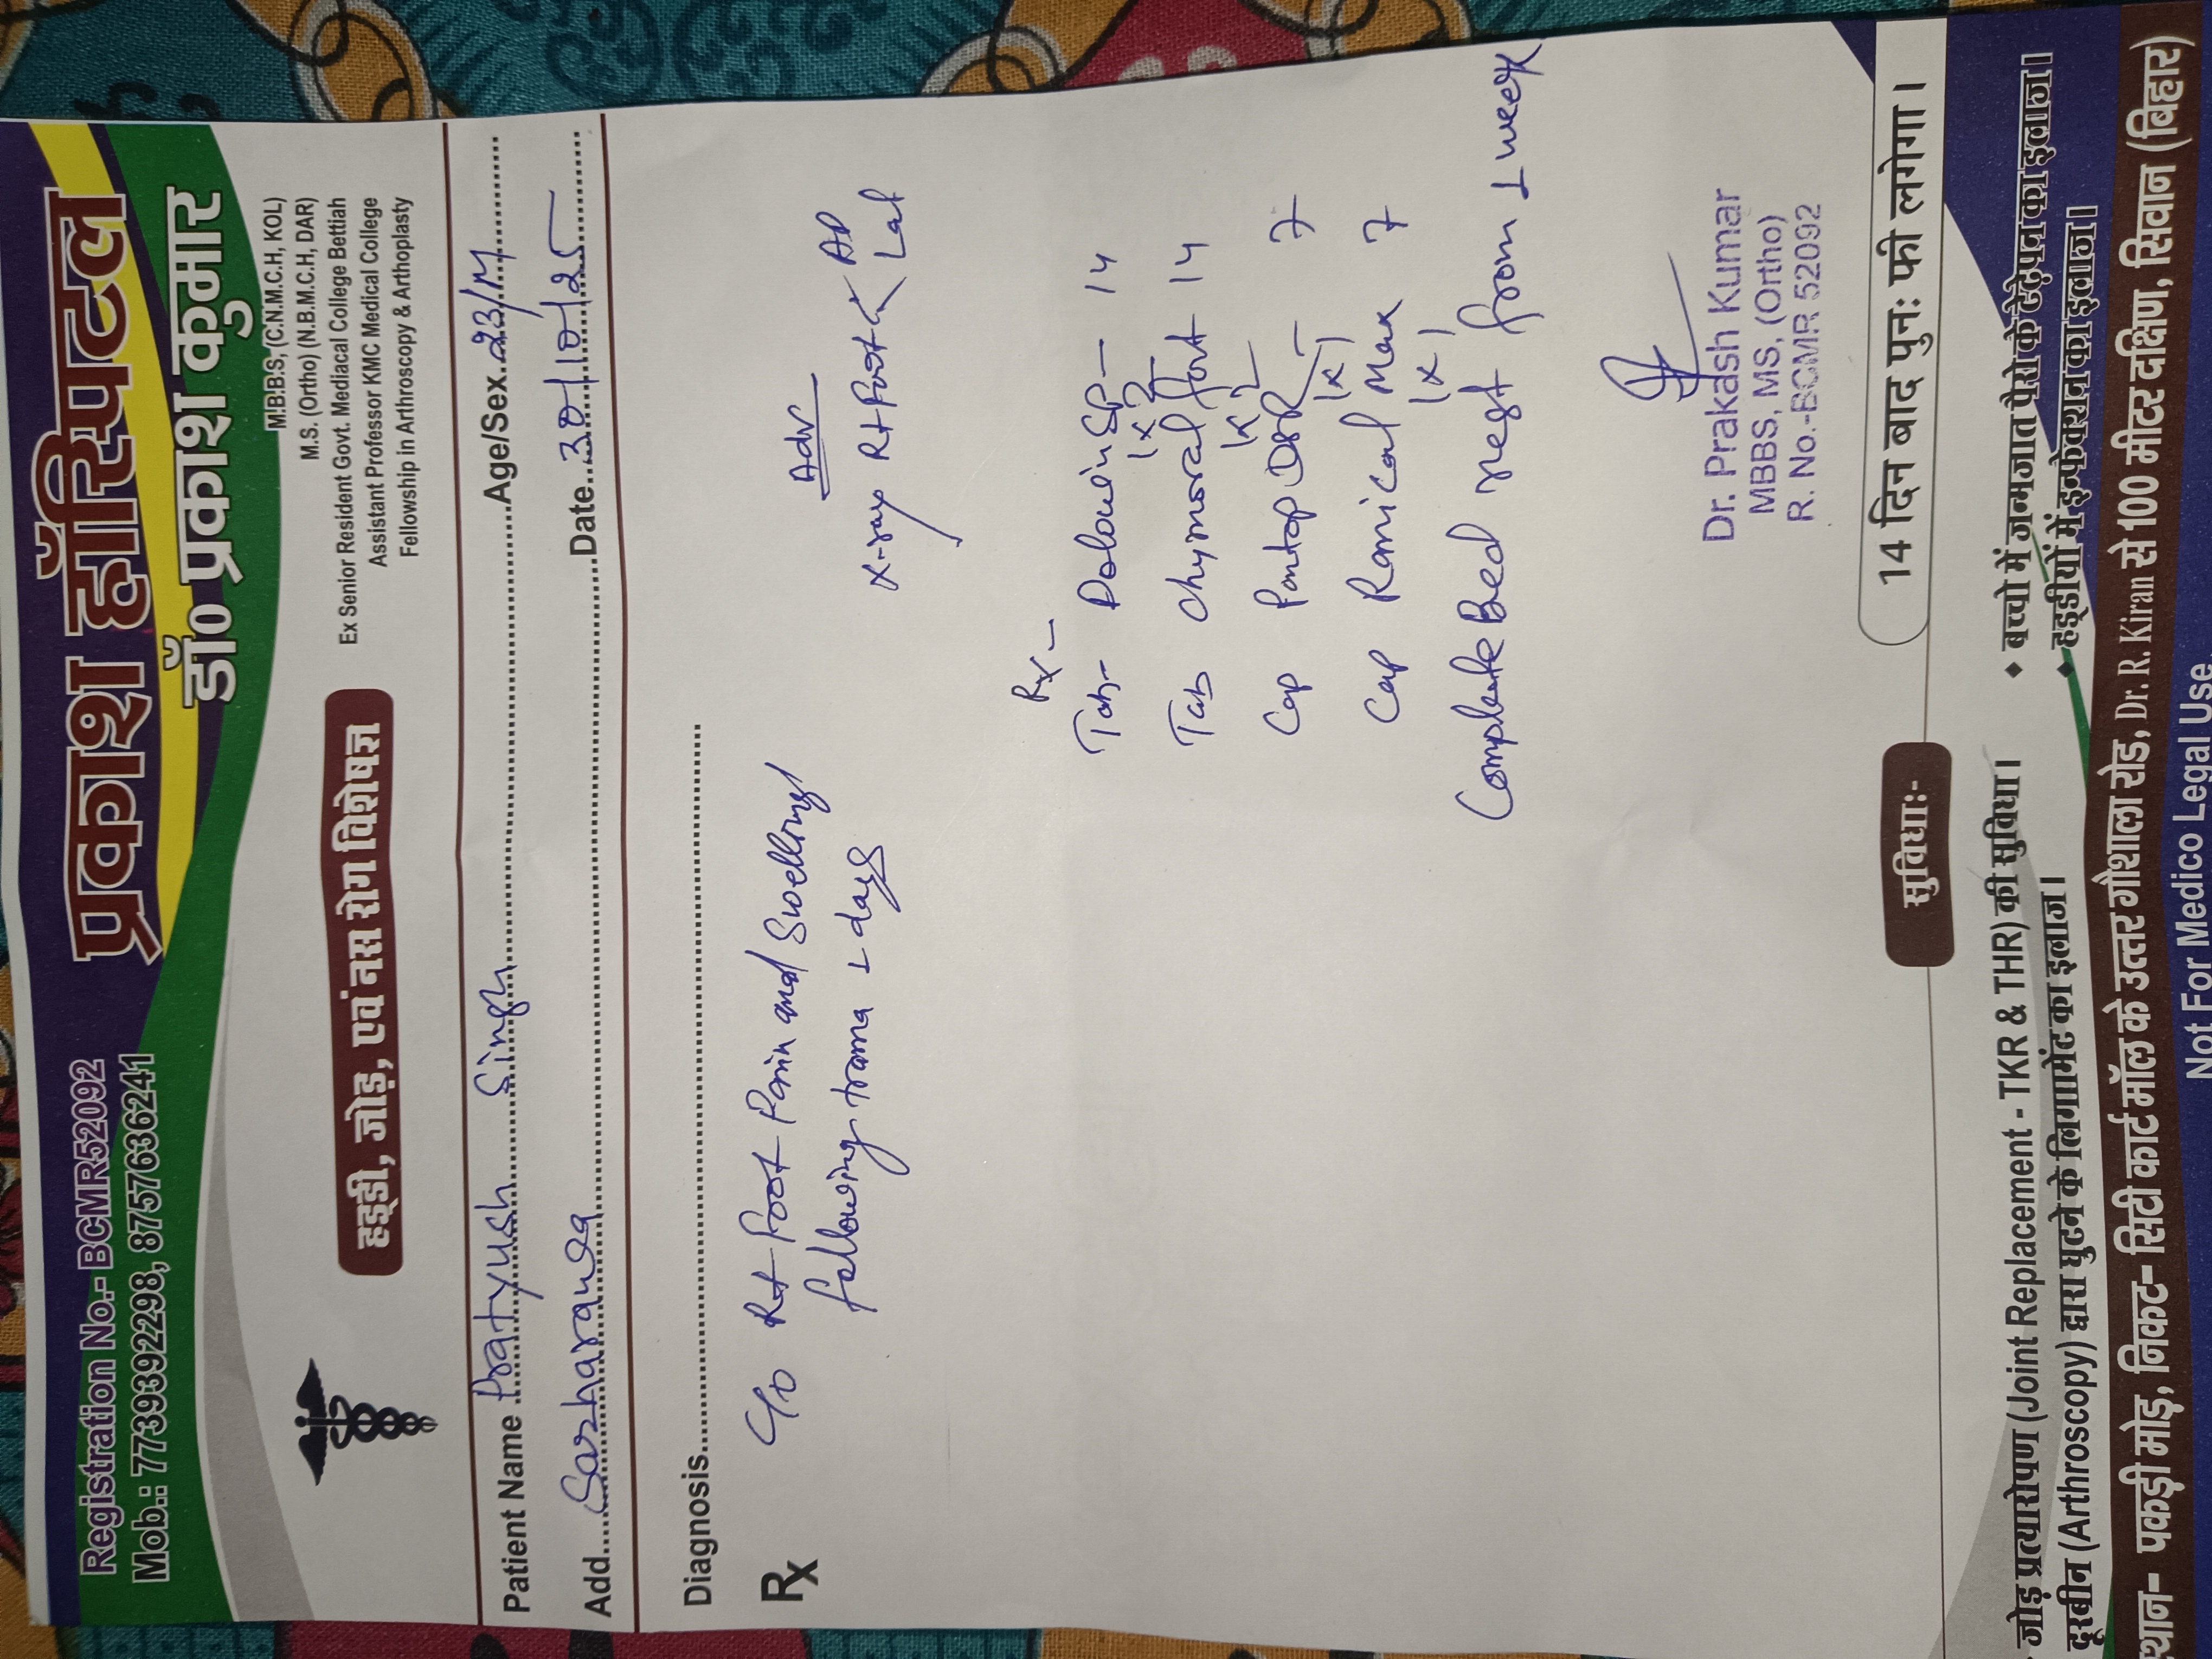 Registration No.- BCMR52092
Mob.: 7739392298, 8757636241
प्रकाश हॉस्पिटल
डॉ० प्रकाश कुमार
M.B.B.S, (C.N.M.C.H, KOL)
M.S. (Ortho) (N.B.M.C.H, DAR)
Ex Senior Resident Govt. Mediacal College Bettiah
Assistant Professor KMC Medical College
Fellowship in Arthroscopy & Arthoplasty
हड्डी, जोड़, एवं नस रोग विशेषज्ञ
Patient Name Pratyush Singh Age/Sex 23/M
Add. Date 30/10/25
Diagnosis
Rx
C/o Rt foot Pain and Swelling
following trama 1 days
Adv
X-ray Rt foot < AP
Lat
Rx -
Tab- SP - 14
1x2
Tab chymoral fort 14
1x2
Cap Pantop DSR - 7
1x1
Cap Ramical Max 7
1x1
Complete Bed rest from 1 week
Dr. Prakash Kumar
MBBS, MS, (Ortho)
R. No.-BCMR 52092
14 दिन बाद पुनः फी लगेगा।
सुविधाः-
जोड़ प्रत्यारोपण (Joint Replacement - TKR & THR) की सुविधा।
♦ बच्चो में जन्मजात पैरो के टेढ़ेपन का इलाज।
दूरबीन (Arthroscopy) द्वारा घुटने के लिगामेंट का इलाज।
♦ हड्डीयों में इन्फेक्शन का इलाज।
स्थान- पकड़ी मोड़, निकट- सिटी कार्ट मॉल के उत्तर गौशाला रोड, Dr. R. Kiran से 100 मीटर दक्षिण, सिवान (बिहार)
Not For Medico Legal Use